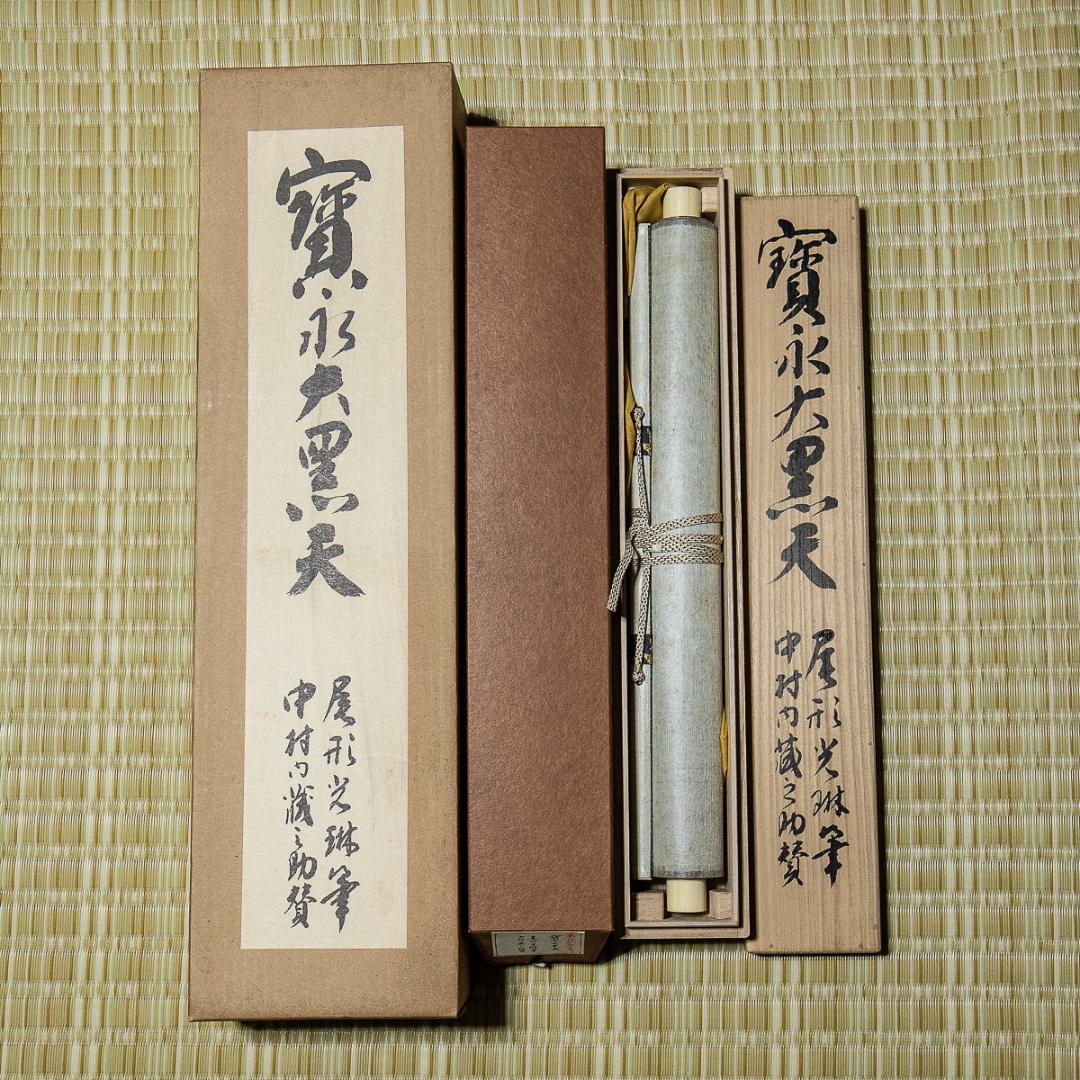 寶永大黑天
尾形光琳筆
中村内蔵之助賛
寶永大黒天
尾形光琳筆
中村内蔵之助賛